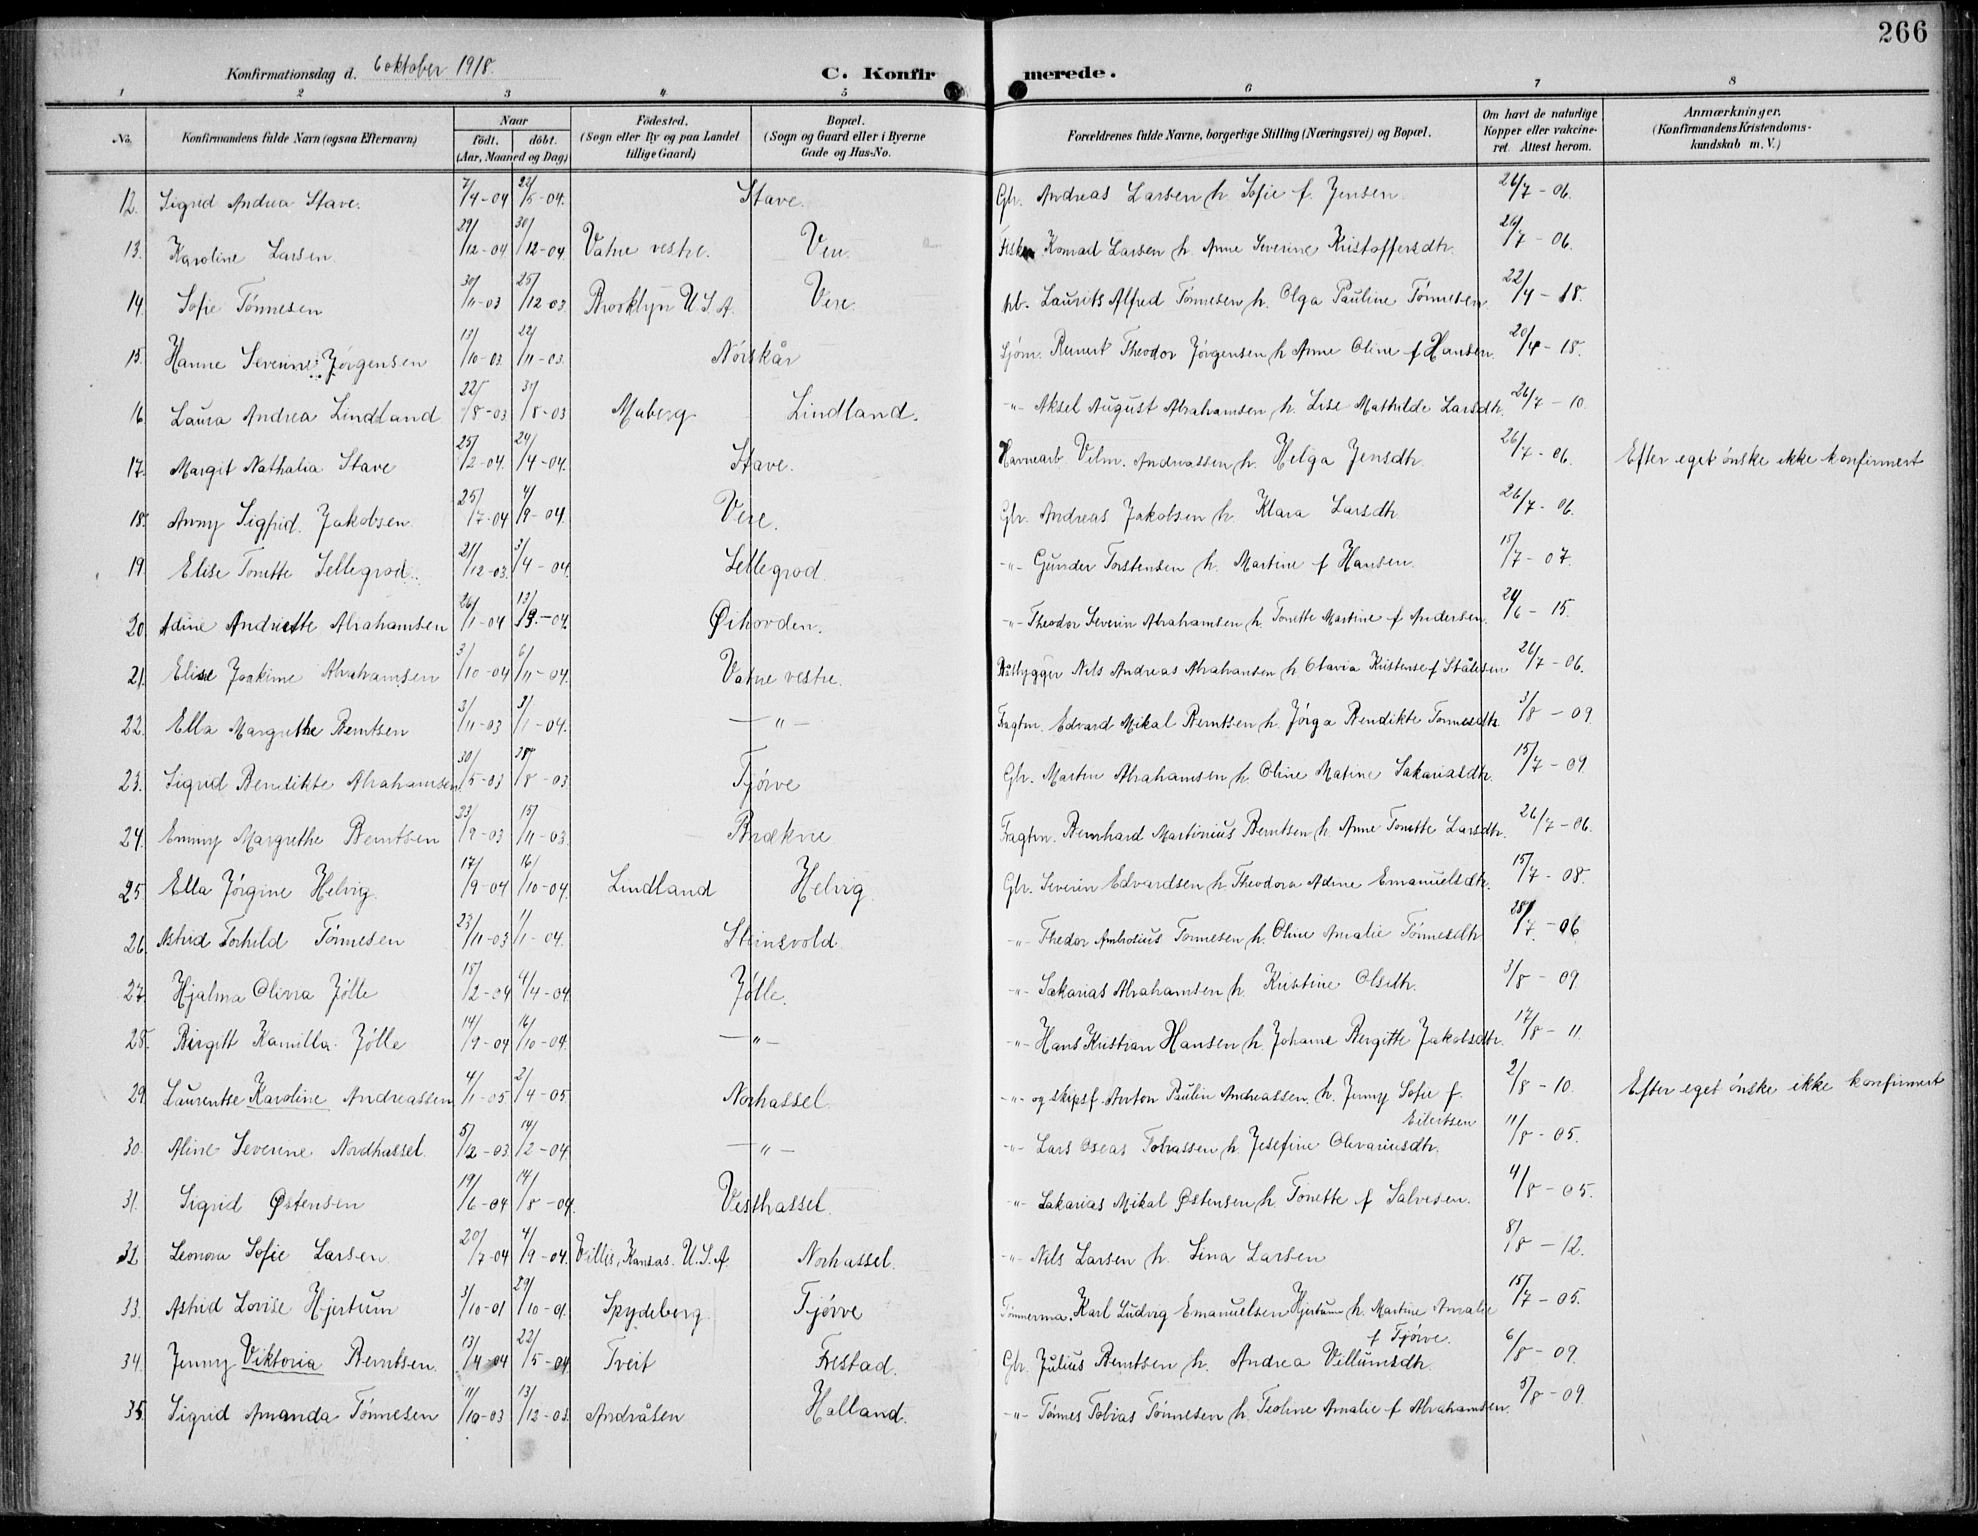 266
Konfirmationsdag d. 6 oktober 1918. C. Konfirmerede.
1 2 3 4 5 6 7 8
No. Konfirmandens fulde Navn (ogsaa Efternavn) Naar født. døbt. (Aar, Maaned og Dag) Fødested. (Sogn eller By og paa Landet tillige Gaard) Bopæl. (Sogn og Gaard eller i Byerne Gade og Hus-No. Forældrenes fulde Navne, borgerlige Stilling (Næringsvei) og Bopæl. Om havt de naturlige Kopper eller vakcineret. Attest herom. Anmærkninger. (Konfirmandens Kristendomskundskab m. V.)
12. Sigrid Andrea Stave. 7/4-04 22/5-04. Stave. Gbr. Andreas Larsen h. Sofie f. Jensen 26/7-06.
13. Karoline Larsen 29/12-04 30/12-04 Vatne vestre. Vere. Fisker Konrad Larsen h. Anne Severine Kristoffersdtr. 26/7-06.
14. Sofie Tönnesen 30/11-03 25/12-03 Brooklyn U.S.A. Vere. Laurits Alfred Tönnesen h. Olga Pauline Tönnesen 22/4-18.
15. Hanne Severine Jörgensen 13/10-03 22/11-03. Nörskår Sjöm. Reinert Theodor Jörgensen h. Anne Oline f Hansen. 20/4-18.
16 Laura Andrea Lindland 22/8-03 3/8-03 Maberg Lindland. -"- Aksel August Abrahamsen h. Lise Mathilde Larsdtr. 26/7-10.
17. Margit Nathalia Stave 25/2-04. 24/4-04. Stave. Havnearb. Vilm. Andreassen h. Helga Jensdtr. 26/7-06. Efter eget önske ikke konfirmert
18. Anny Sigfrid Jakobsen 25/7-04 4/9-04. Vere. Gbr. Andreas Jakobsen h. Klara Larsdtr. 26/7-06.
19. Elise Tonette Sellegrod. 21/12-03. 3/4-04. Sellegrod -"- Gunder Torstensen h. Martine f Hansen. 15/7-07.
20. Adine Andriette Abrahamsen 26/1-04 13/3-04. Øihovden. -"- Theodor Severin Abrahamsen h. Tonette Martine f Andersen. 24/6-15.
21. Elise Joakime Abrahamsen 3/10-04 6/11-04. Vatne vestre. Båtbygger Nils Andreas Abrahamsen h Otavia Kristense f Stålesen 26/7-06.
22. Ella Margrethe Berntsen 3/11-03 3/1-04. -"- Fragtm. Edvard Mikal Berntsen h. Jörga Bendikte Tönnesdtr. 3/8-09
23. Sigrid Bendikte Abrahamsen 30/5-03 28/8-03 Tjörve Gbr. Marten Abrahamsen h. Oline Matine Sakariasdtr. 15/7-09.
24. Emmy Margrethe Berntsen 23/9-03 15/11-03. Brækne Fragtm. Bernhard Martinius Berntsen h. Anne Tonette Larsdtr. 26/7-06.
25. Ella Jörgine Helvig 17/9-04 16/10-04. Lindland Helvig. Gbr. Severin Edvardsen h. Theodora Adine Emanuelsdtr. 15/7-08.
26. Astrid Torhild Tönnesen 23/11-03 1/1-04. Steinsvold. -"- Thedor Ambrosius Tönnesen h. Oline Amalie Tönnesdtr 28/7-06
27. Hjalma Olivia Jölle 18/2-04 4/4-04. Jölle. -"- Sakarias Abrahamsen h. Kristine Olsdtr. 3/8-09
28. Birgitt Kamilla Jölle 14/9-04 16/10-04. -"- -"- Hans Kristian Hansen h. Johanne Bergitte Jakobsdtr. 17/8-11.
29. Laurentse Karoline Andreassen 4/1-05 2/4-05 Norhassel. -"- og skipsf. Anton Paulin Andreassen. h. Jenny Sofie f. 2/8-10. Efter eget önske ikke konfirmert
Eilertsen
30. Aline Severine Nordhassel. 5/12-03 14/2-04. -"- -"- Lars Oseas Tobiassen h. Josefine Olevariusdtr. 11/8-05.
31. Sigrid Østensen 19/6-04 14/8-04. Vesthassel. -"- Sakarias Mikal Østensen h. Tonette f Salvesen. 4/8-05.
32 Leonora Sofie Larsen 20/7-04 4/9-04. Villis, Kansas. U.S.A Norhassel. -"- Nils Larsen h. Lina Larsen 8/8-12.
33. Astrid Lovise Hjertum 3/10-01 29/10-01. Spydeberg Tjörve Tömmerma. Karl Ludvig Emanuelsen Hjertum h. Martine Amalie 15/7-05.
f Tjörve.
34. Jenny Viktoria Berntsen. 13/4-04 22/5-04 Tveit Frestad. Gbr. Julius Berntsen h. Andrea Villumsdtr. 6/8-09.
35. Sigrid Amanda Tönnesen 11/10-03 13/12-03. Andråsen Halland. -"- Tönnes Tobias Tönnesen h. Teoline Amalie f Abrahamsen. 5/8-09.